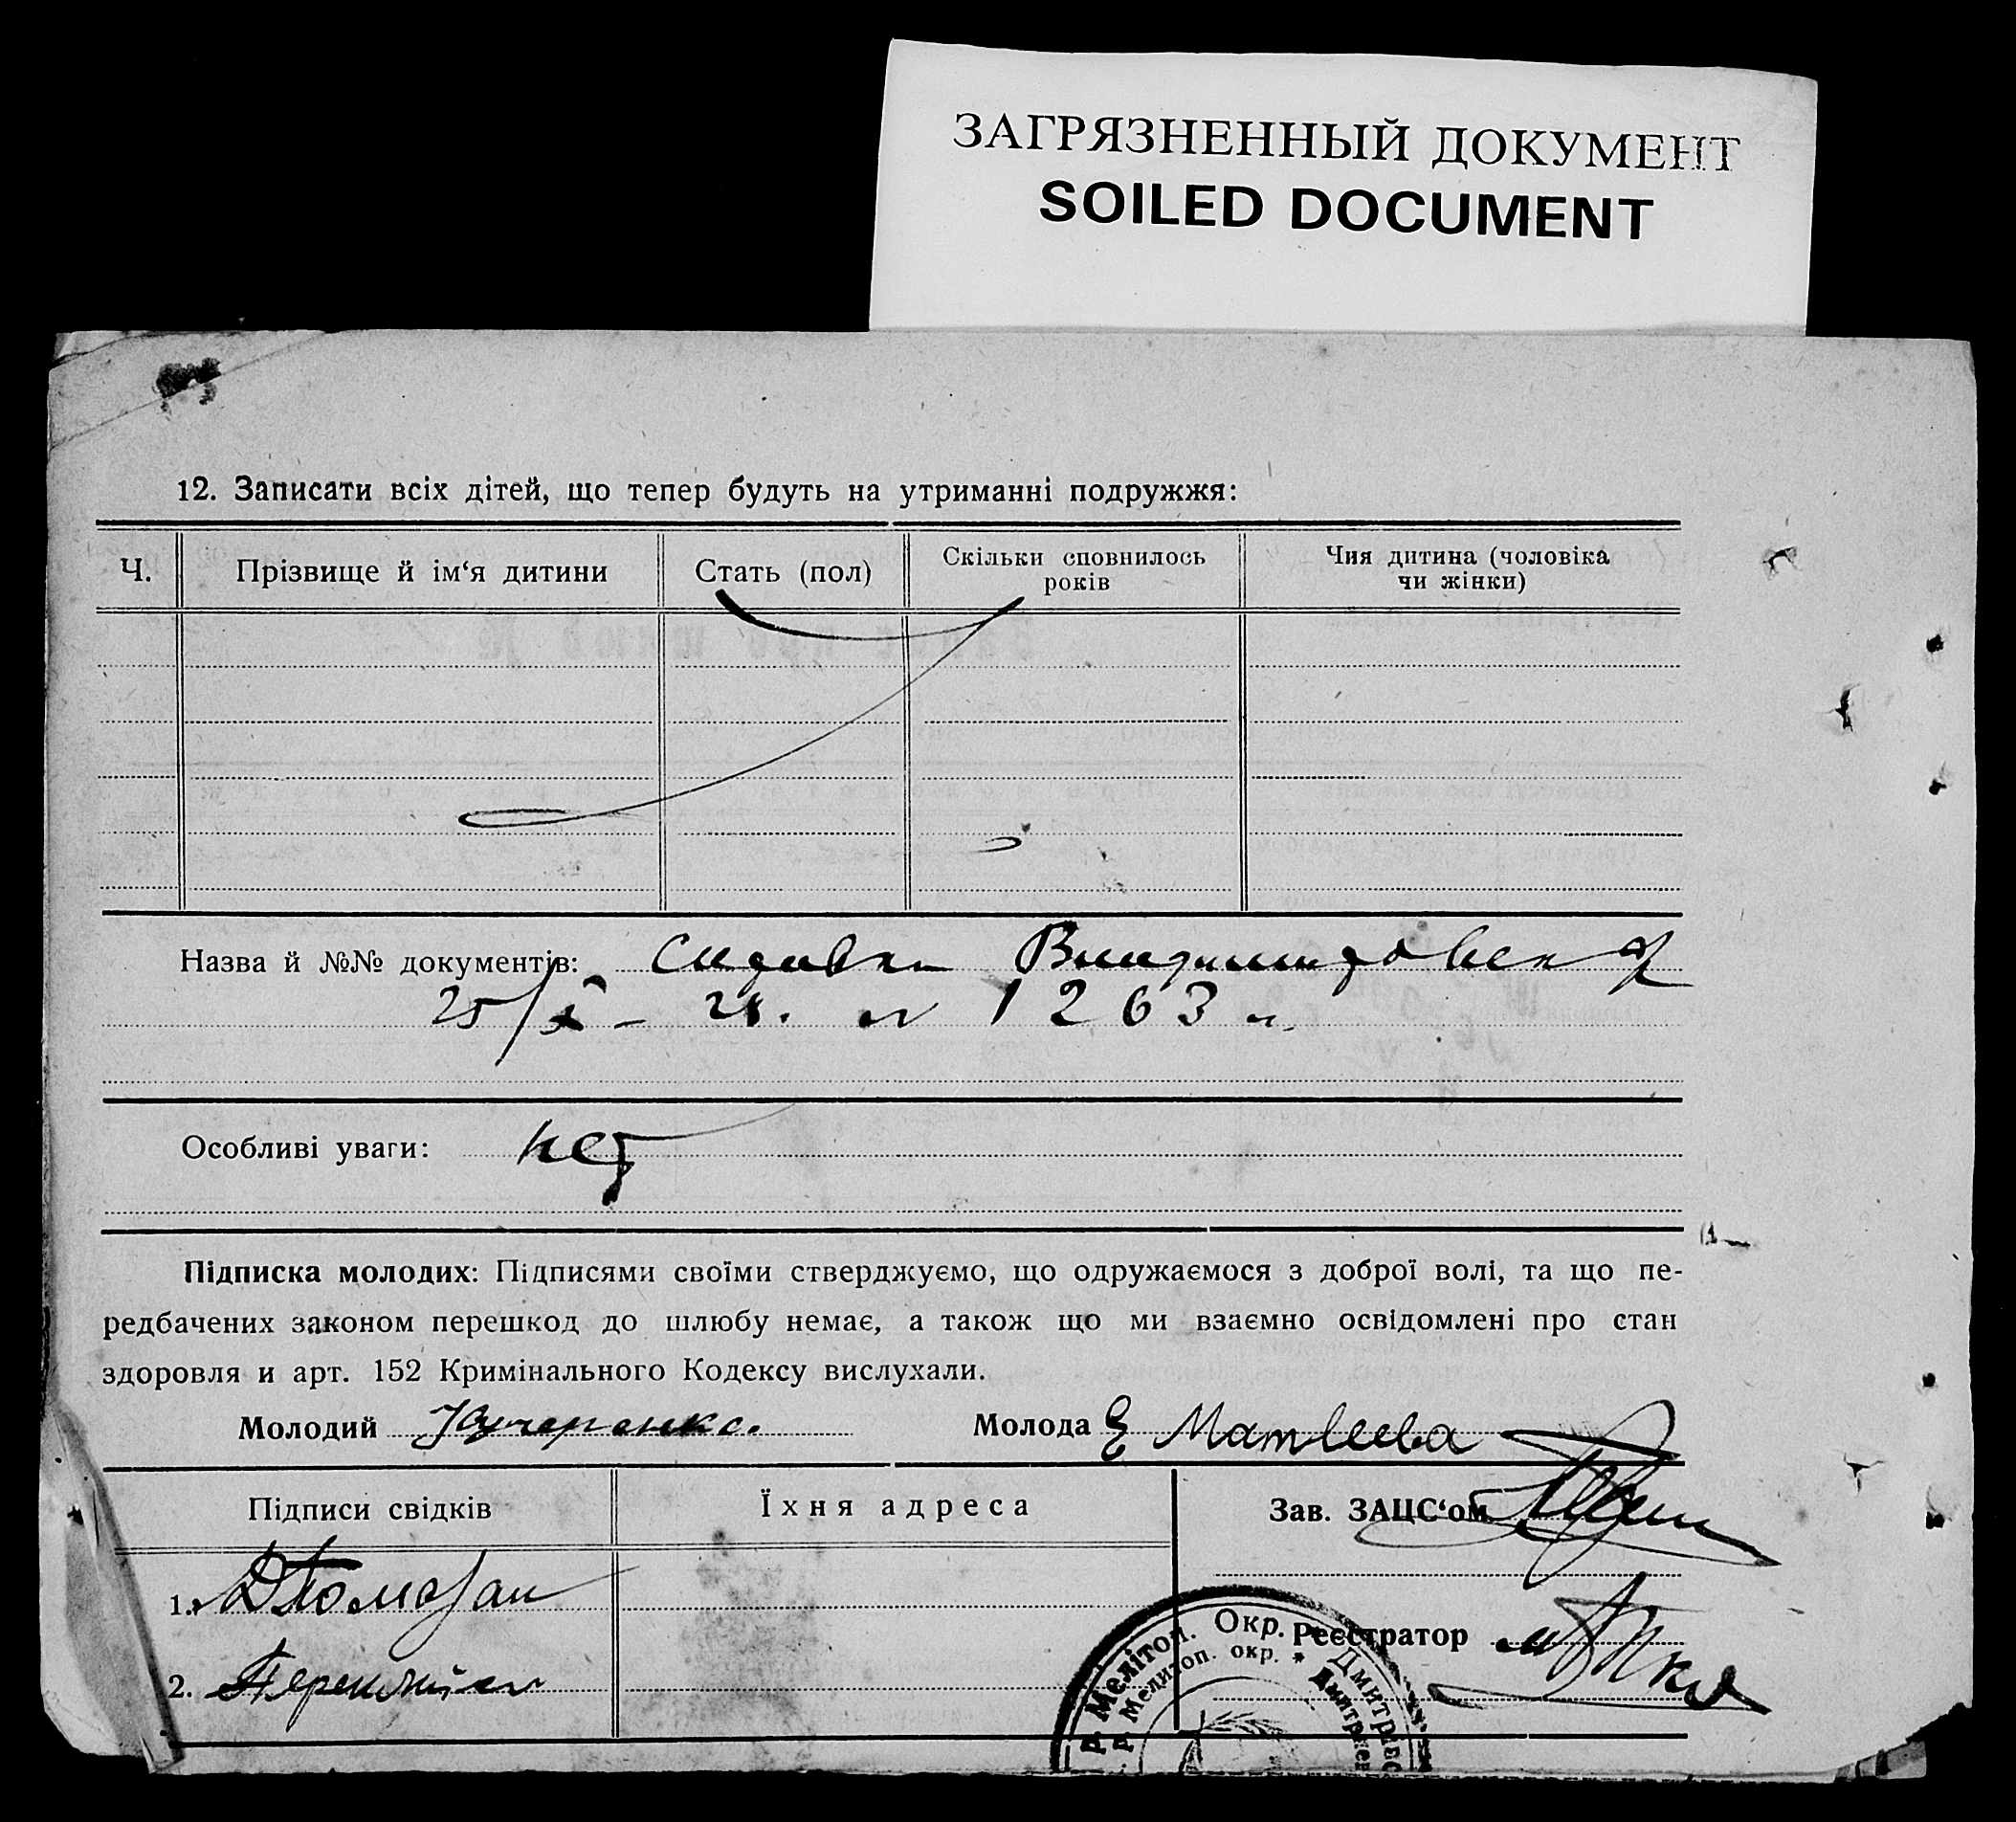 ЗАГРЯЗНЕННЫЙ ДОКУМЕНТ
SOILED DOCUMENT
12. Записати всіх дітей, що тепер будуть на утриманні подружжя:
Ч. Прізвище й ім‘я дитини Стать (пол) Скільки сповнилось років Чия дитина (чоловіка чи жінки)
Назва й №№ документів:
25/X - 28. № 1263
Особливі уваги: нет
Підписка молодих: Підписями своїми стверджуємо, що одружаємося з доброї волі, та що пе-
редбачених законом перешкод до шлюбу немає, а також що ми взаємно освідомлені про стан
здоровля и арт. 152 Кримінального Кодексу вислухали.
Молодий Кучеренко. Молода Е Матвеева
Підписи свідків Їхня адреса Зав. ЗАЦС‘ом
1.
2.
Реєстратор
Мелітоп. Окр.
Мелитоп. окр. *